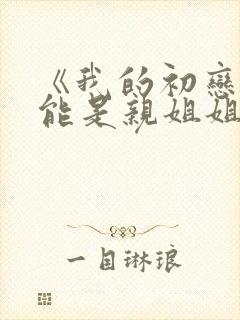 《我的初戀
能是親姐姐
一目琳琅